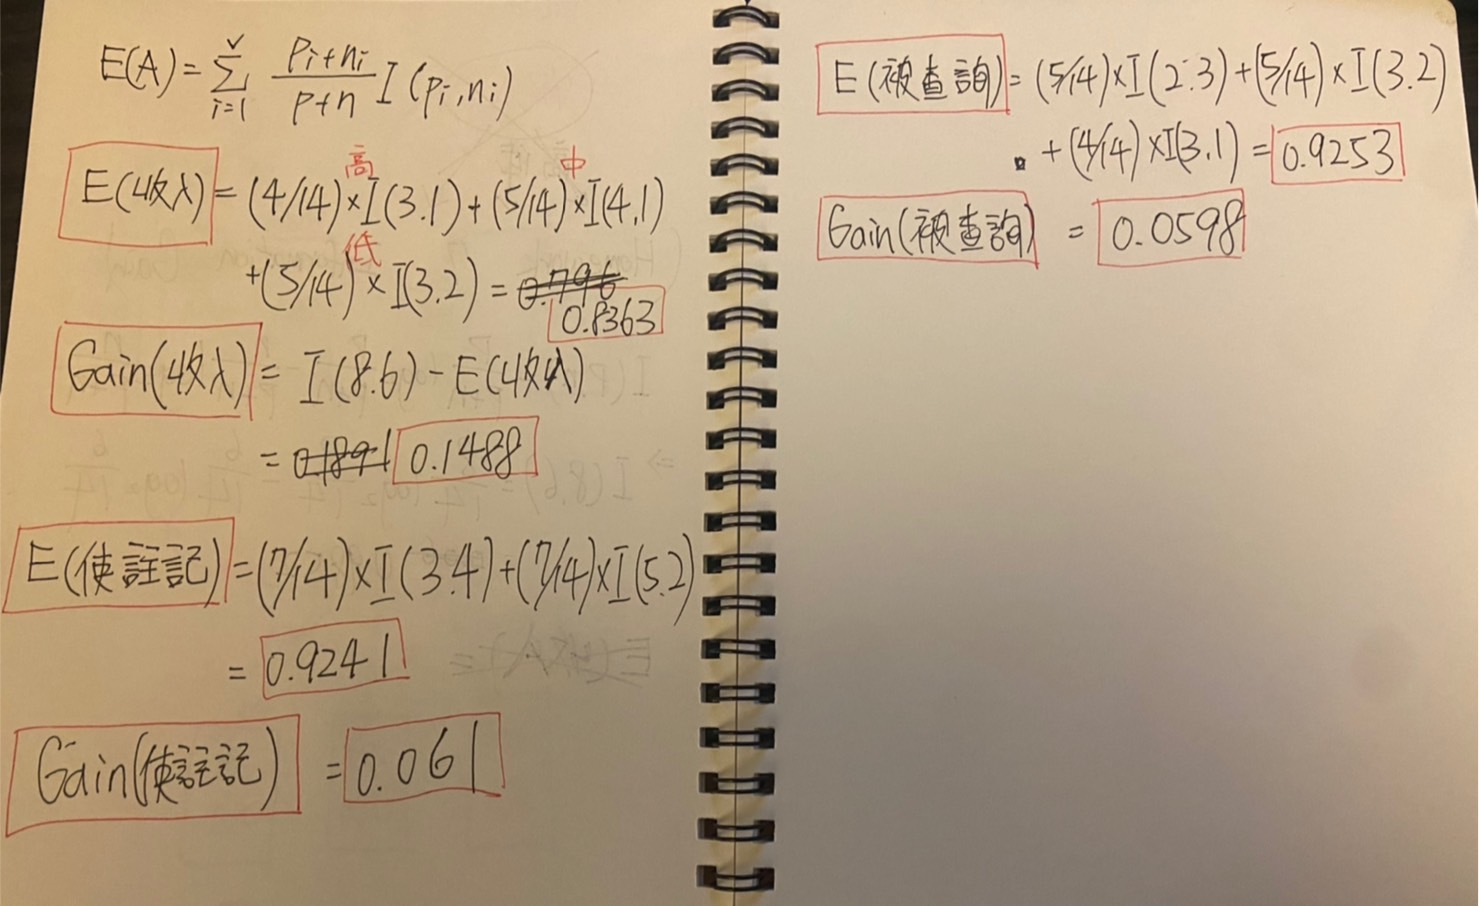 E(A)=∑_{i=1}^{v} (pi+ni)/(p+n) I(pi,ni)
高 中
E(收入)=(4/14)×I(3.1)+(5/14)×I(4,1)
低
+(5/14)×I(3.2)=0.796
0.8363
Gain(收入)= I(8.6)-E(收入)
=0.1891 0.1488
E(使註記)=(7/14)×I(3.4)+(7/14)×I(5.2)
=0.9241
Gain(使註記) =0.061
E(被查詢)=(5/14)×I(2.3)+(5/14)×I(3.2)
+(4/14)×I(3.1)=0.9253
Gain(被查詢) = 0.0598